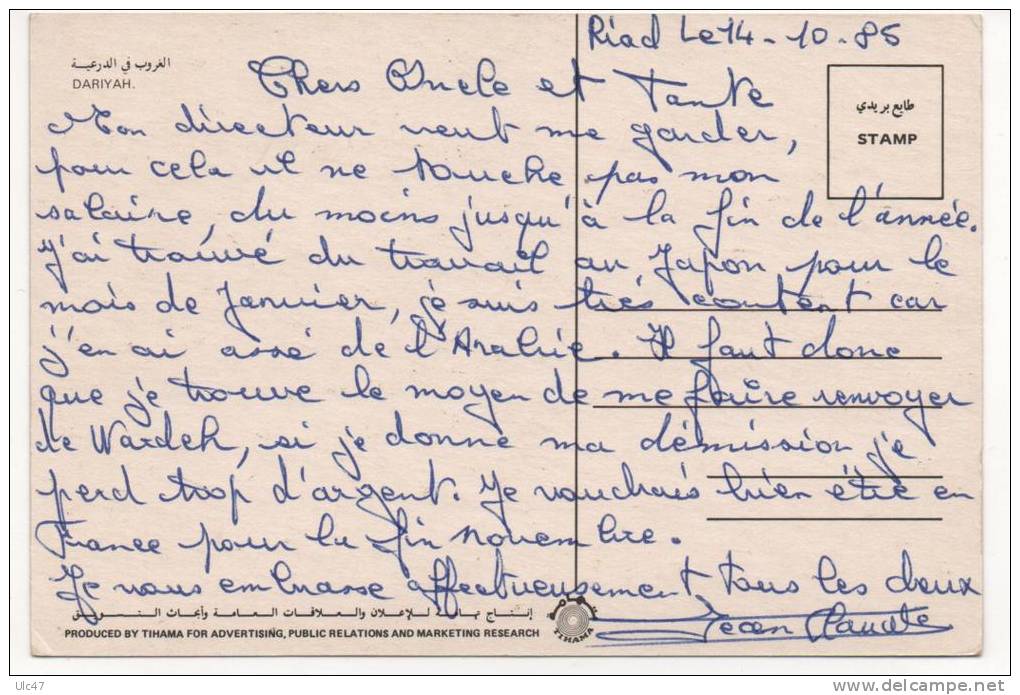 Riad Le 14-10-85
الغروب في الدرعية
DARIYAH.
طابع بريدي
STAMP
Chers Oncle et Tante
Mon directeur veut me garder,
pour cela il ne touche pas mon
salaire, du moins jusqu'à la fin de l'année.
J'ai trouvé du travail au Japon pour le
mois de Janvier, je suis très content car
j'en ai assé de l'Arabie. Il faut donc
que je trouve le moyen de me faire renvoyer
de Wardeh, si je donne ma démission je
perd trop d'argent. Je voudrais bien être en
France pour la fin novembre.
Je vous embrasse affectueusement tous les deux
Jean Claude
إنتاج تهامة للإعلان والعلاقات العامة وأبحاث التسويق
PRODUCED BY TIHAMA FOR ADVERTISING, PUBLIC RELATIONS AND MARKETING RESEARCH
تهامة
TIHAMA
Ulc47
delcampe.net